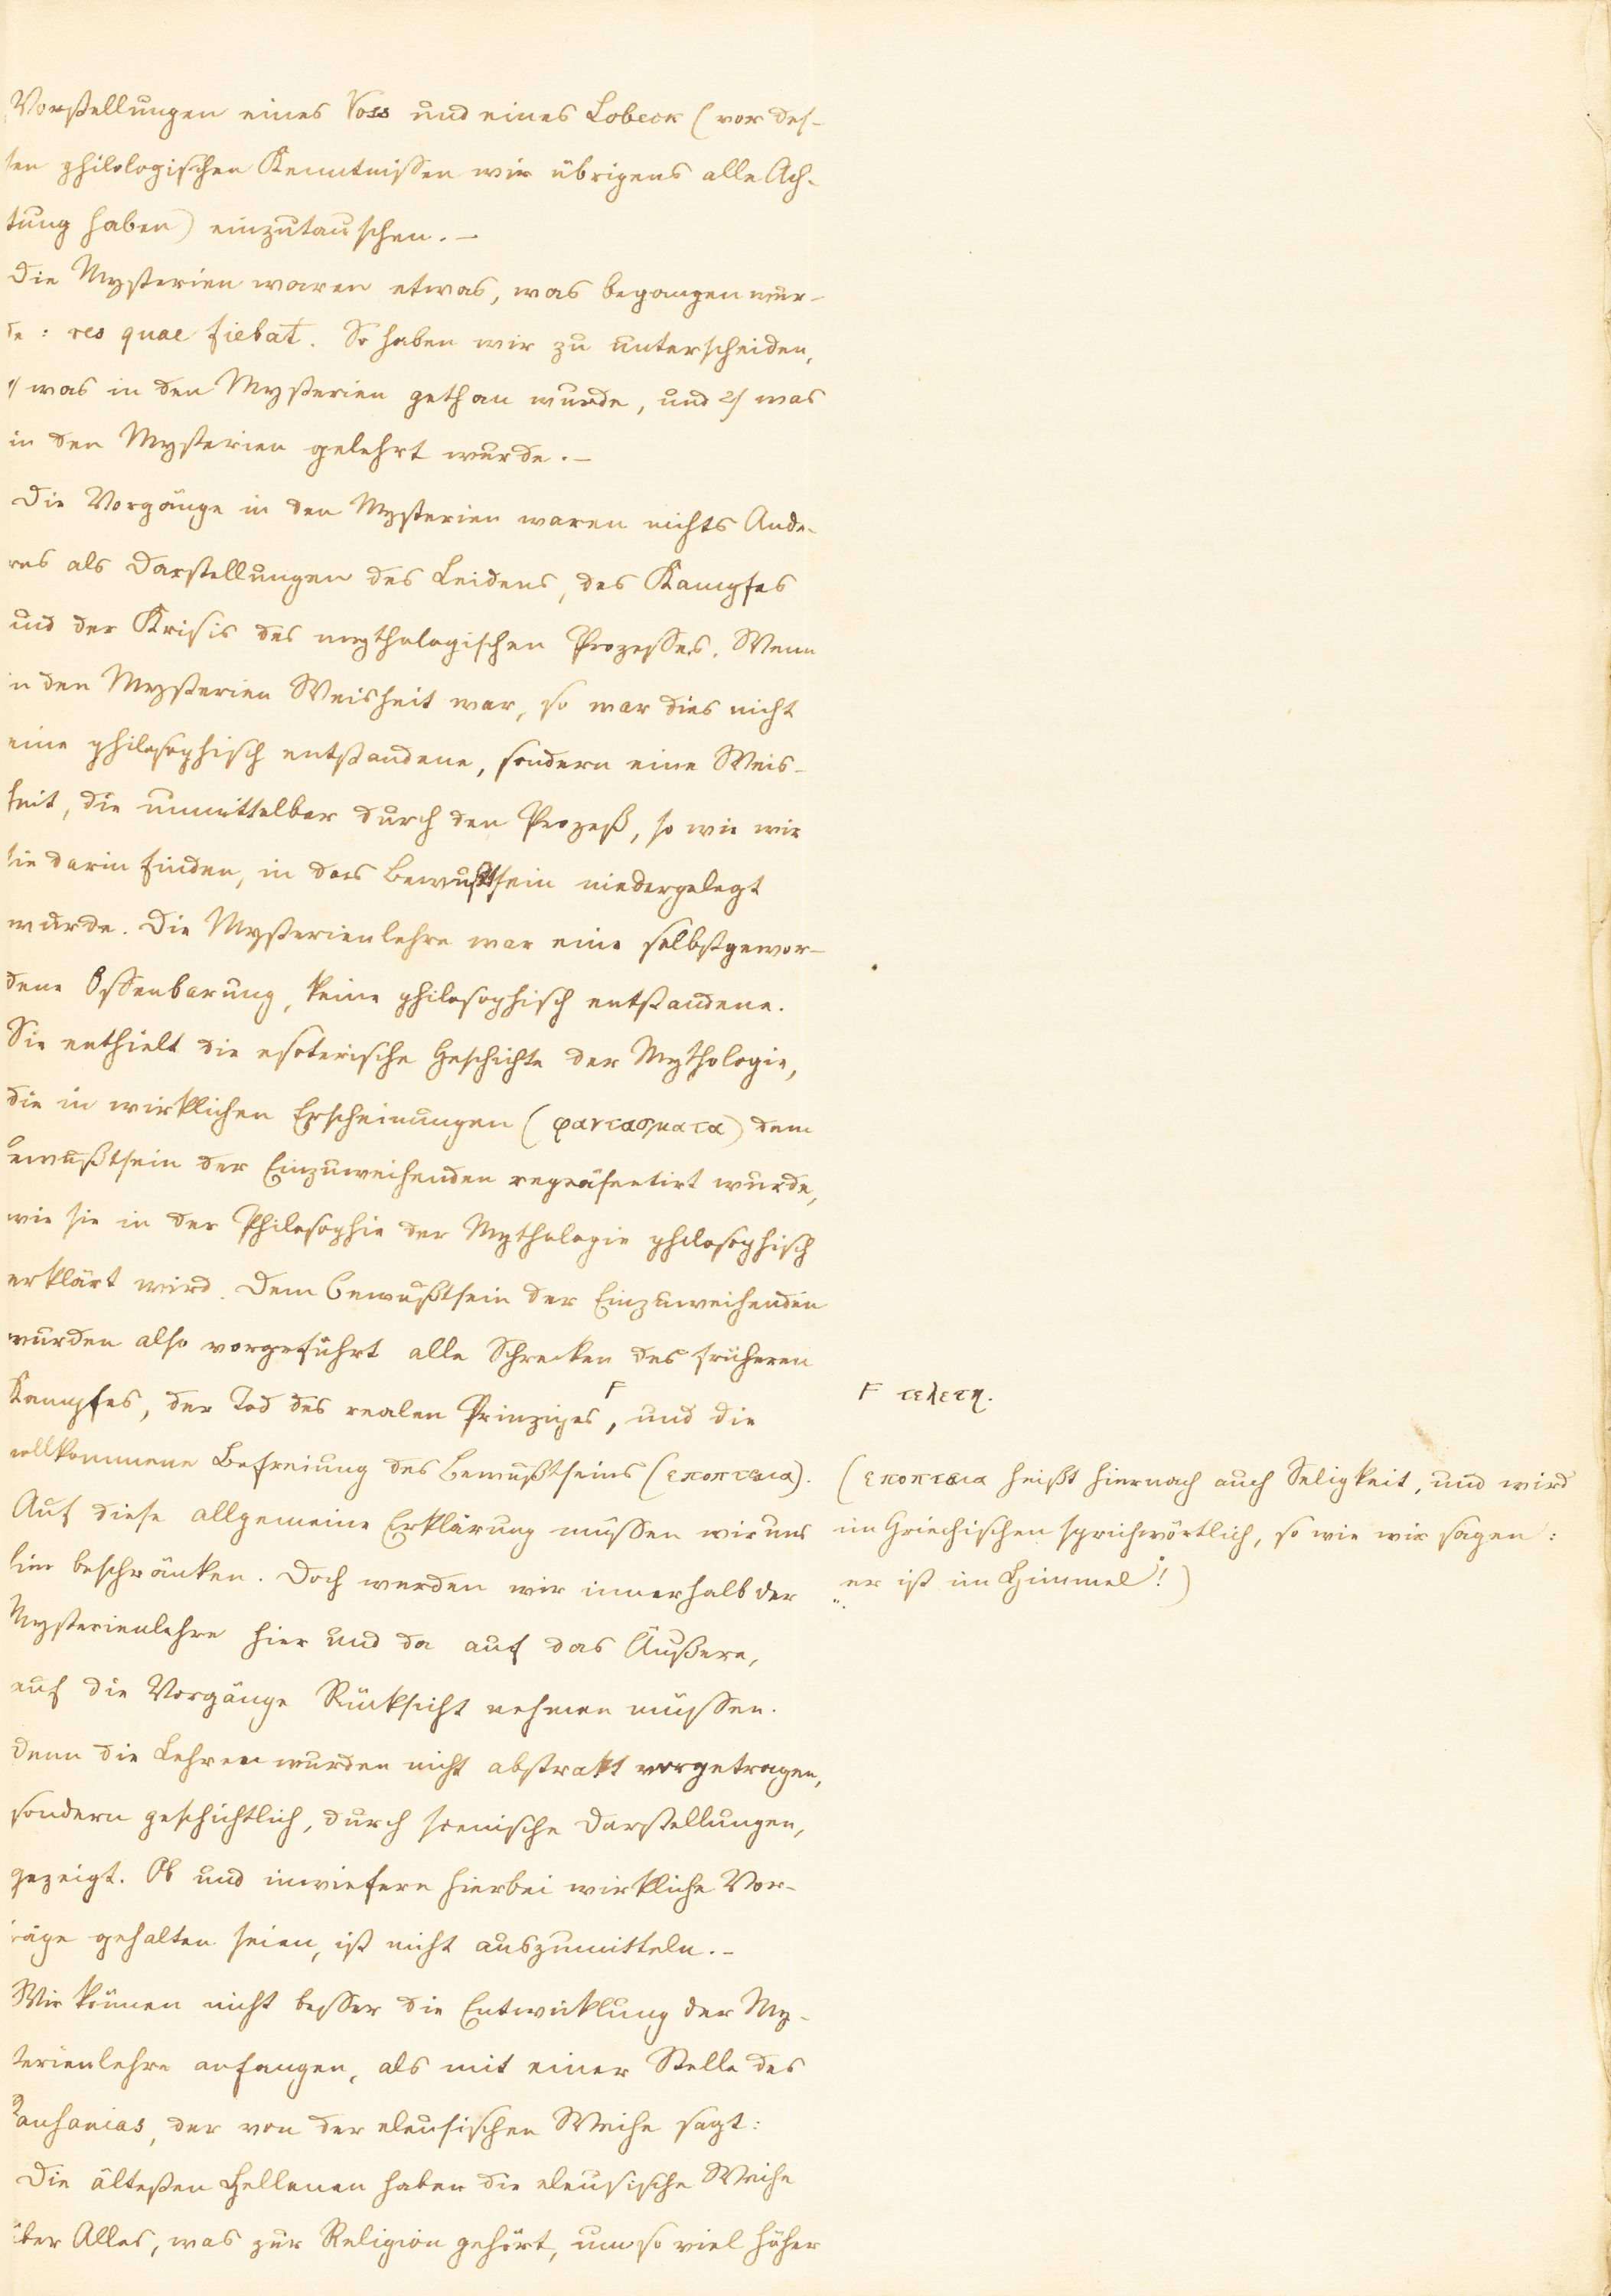 Vorstellungen eines Voss und eines Lobeck (vor des-
sen philologischen Kenntnissen wir übrigens alle Ach-
tung haben) einzutauschen. –
Die Mysterien waren etwas, was begangen wur-
de: res quae fiebat. So haben wir zu unterscheiden,
1/ was in den Mysterien gethan wurde, und 2/ was
in den Mysterien gelehrt wurde. –
Die Vorgänge in den Mysterien waren nichts Ande-
res als Darstellungen des Leidens, des Kampfes
und der Krisis des mythologischen Prozesses. Wenn
in den Mysterien Weisheit war, so war dies nicht
eine philosophisch entstandene, sondern eine Weis-
heit, die unmittelbar durch den Prozeß, so wie wir
sie darin finden, in das Bewußtsein niedergelegt
wurde. Die Mysterienlehre war eine selbstgewor-
dene Offenbarung, keine philosophisch entstandene.
Sie enthielt die esoterische Geschichte der Mythologie,
die in wirklichen Erscheinungen (φαντασματα) dem
Bewußtsein der Einzuweihenden repräsentirt wurde,
wie sie in der Philosophie der Mythologie philosophisch
erklärt wird. Dem Bewußtsein der Einzuweihenden
wurden also vorgeführt alle Schrecken des früheren
Kampfes, der Tod des realen Prinzipes Ϝ, und die
vollkommene Befreiung des Bewußtseins (εποπτεια).
Auf diese allgemeine Erklärung müssen wir uns
hier beschränken. Doch werden wir innerhalb der
Mysterienlehre hier und da auf das Äußere,
auf die Vorgänge Rücksicht nehmen müssen.
Denn die Lehren wurden nicht abstrakt vorgetragen,
sondern geschichtlich, durch scenische Darstellungen,
gezeigt. Ob und inwiefern hierbei wirkliche Vor-
träge gehalten seien, ist nicht auszumitteln. –
Wir können nicht besser die Entwicklung der My-
sterienlehre anfangen, als mit einer Stelle des
Pausanias, der von der eleusischen Weihe sagt:
Die ältesten Hellenen haben die eleusische Weihe
über Alles, was zur Religion gehört, um so viel höher
Ϝ τελετη.
(εποπτεια heißt hiernach auch Seligkeit, und wird
im Griechischen sprichwörtlich, so wie wir sagen:
„er ist im Himmel"!)